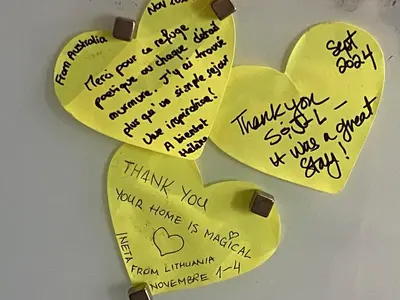 From Australia
Nov 202
Merci pour ce refuge
poétique où chaque détail
murmure. J'y ai trouvé
plus qu'un simple séjour
Une inspiration!
A bientôt
Hélène
Sept
2024
Thank you
It was a great
stay!
THANK YOU
YOUR HOME IS MAGICAL
INETA
FROM LITHUANIA
NOVEMBRE 1-4